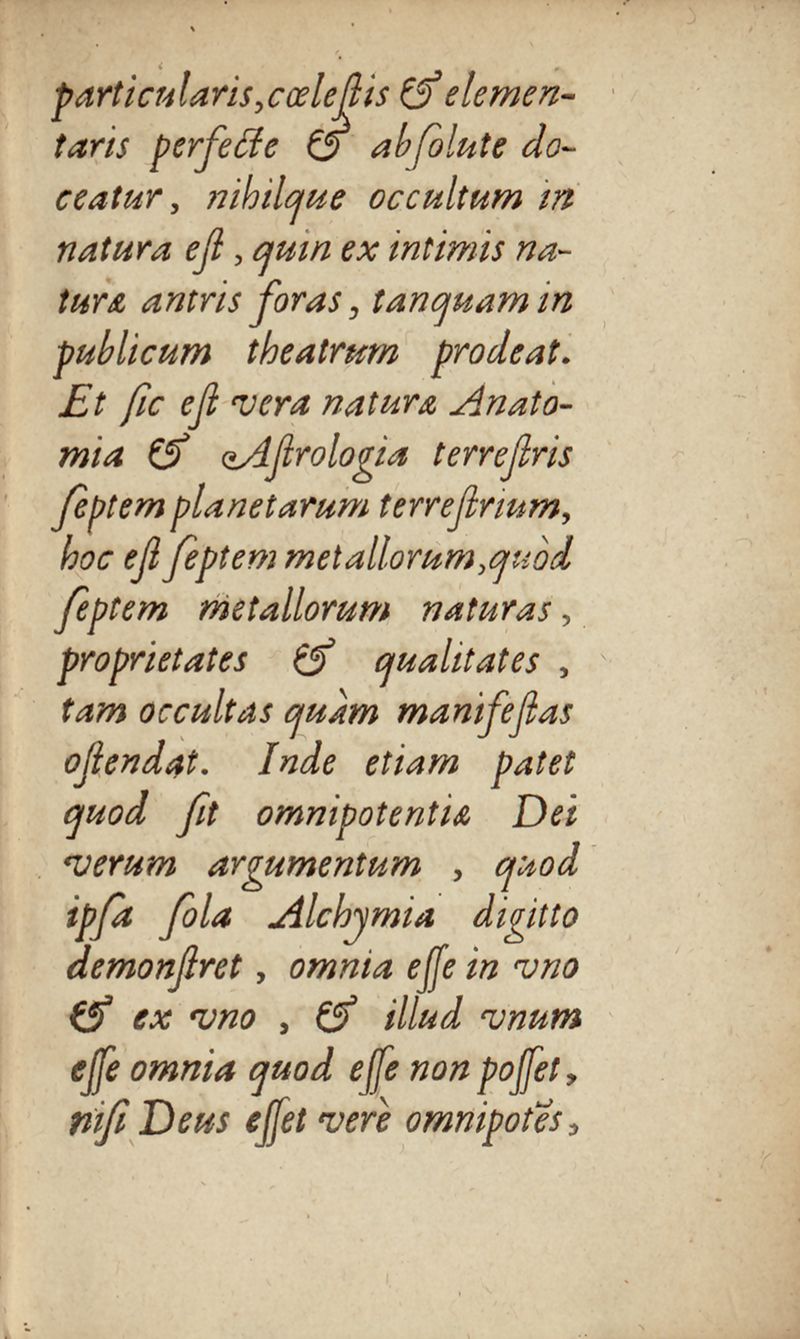 particularis,cœleſtis & elemen-
taris perfecte & abſolute do-
ceatur, nihilque occultum in
natura eſt, quin ex intimis na-
turæ antris foras, tanquam in
publicum theatrum prodeat.
Et ſic eſt vera naturæ Anato-
mia & Aſtrologia terreſtris
ſeptem planetarum terreſtrium,
hoc eſt ſeptem metallorum,quòd
ſeptem metallorum naturas,
proprietates & qualitates ,
tam occultas quàm manifeſtas
oſtendat. Inde etiam patet
quod ſit omnipotentiæ Dei
verum argumentum , quod
ipſa ſola Alchymia digitto
demonſtret, omnia eſſe in vno
& ex vno , & illud vnum
eſſe omnia quod eſſe non poſſet,
niſi Deus eſſet verè omnipotẽs,